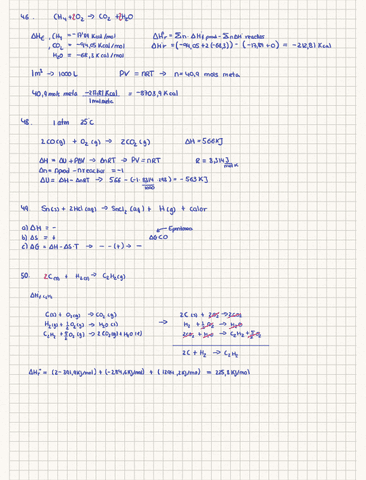 46. CH4 + 2O2 → CO2 + 2H2O
ΔHf, CH4 = -17,89 Kcal/mol
CO2 = -94,05 Kcal/mol
H2O = -68,3 Kcal/mol
ΔH°r = Σn ΔHf prod - Σn ΔH reactos
ΔHr = (-94,05 + 2(-68,3)) - (-17,89 + 0) = -212,81 Kcal
1m³ → 1000 L PV = nRT → n = 40,9 mols meta
40,9 mols meta = -8703,9 Kcal
48. 1 atm 25°C
2CO(g) + O2(g) → 2CO2(g) ΔH = 566 KJ
ΔH = ΔU + PΔV → ΔnRT → PV = nRT R = 8,314 J/mol K
Δn = nprod - nreactor = -1
ΔU = ΔH - ΔnRT → 566 - (-1 · 8,314/1000 · 298) = -563 KJ
49. Sn(s) + 2HCl(aq) → SnCl2(aq) + H2(g) + calor
a) ΔH = -
b) ΔS = +
c) ΔG = ΔH - ΔS·T → - - (+) → -
ΔG<0
50. 2C(s) + H2(g) → C2H2(g)
ΔHf C2H2
C(s) + O2(g) → CO2(g)
H2(g) + ½O2(g) → H2O(l)
C2H2 + 5/2 O2(g) → 2CO2(g) + H2O(l)
→
2C(s) + 2O2 → 2CO2
H2 + ½O2 → H2O
2CO2 + H2O → C2H2 + 5/2 O2
2C + H2 → C2H2